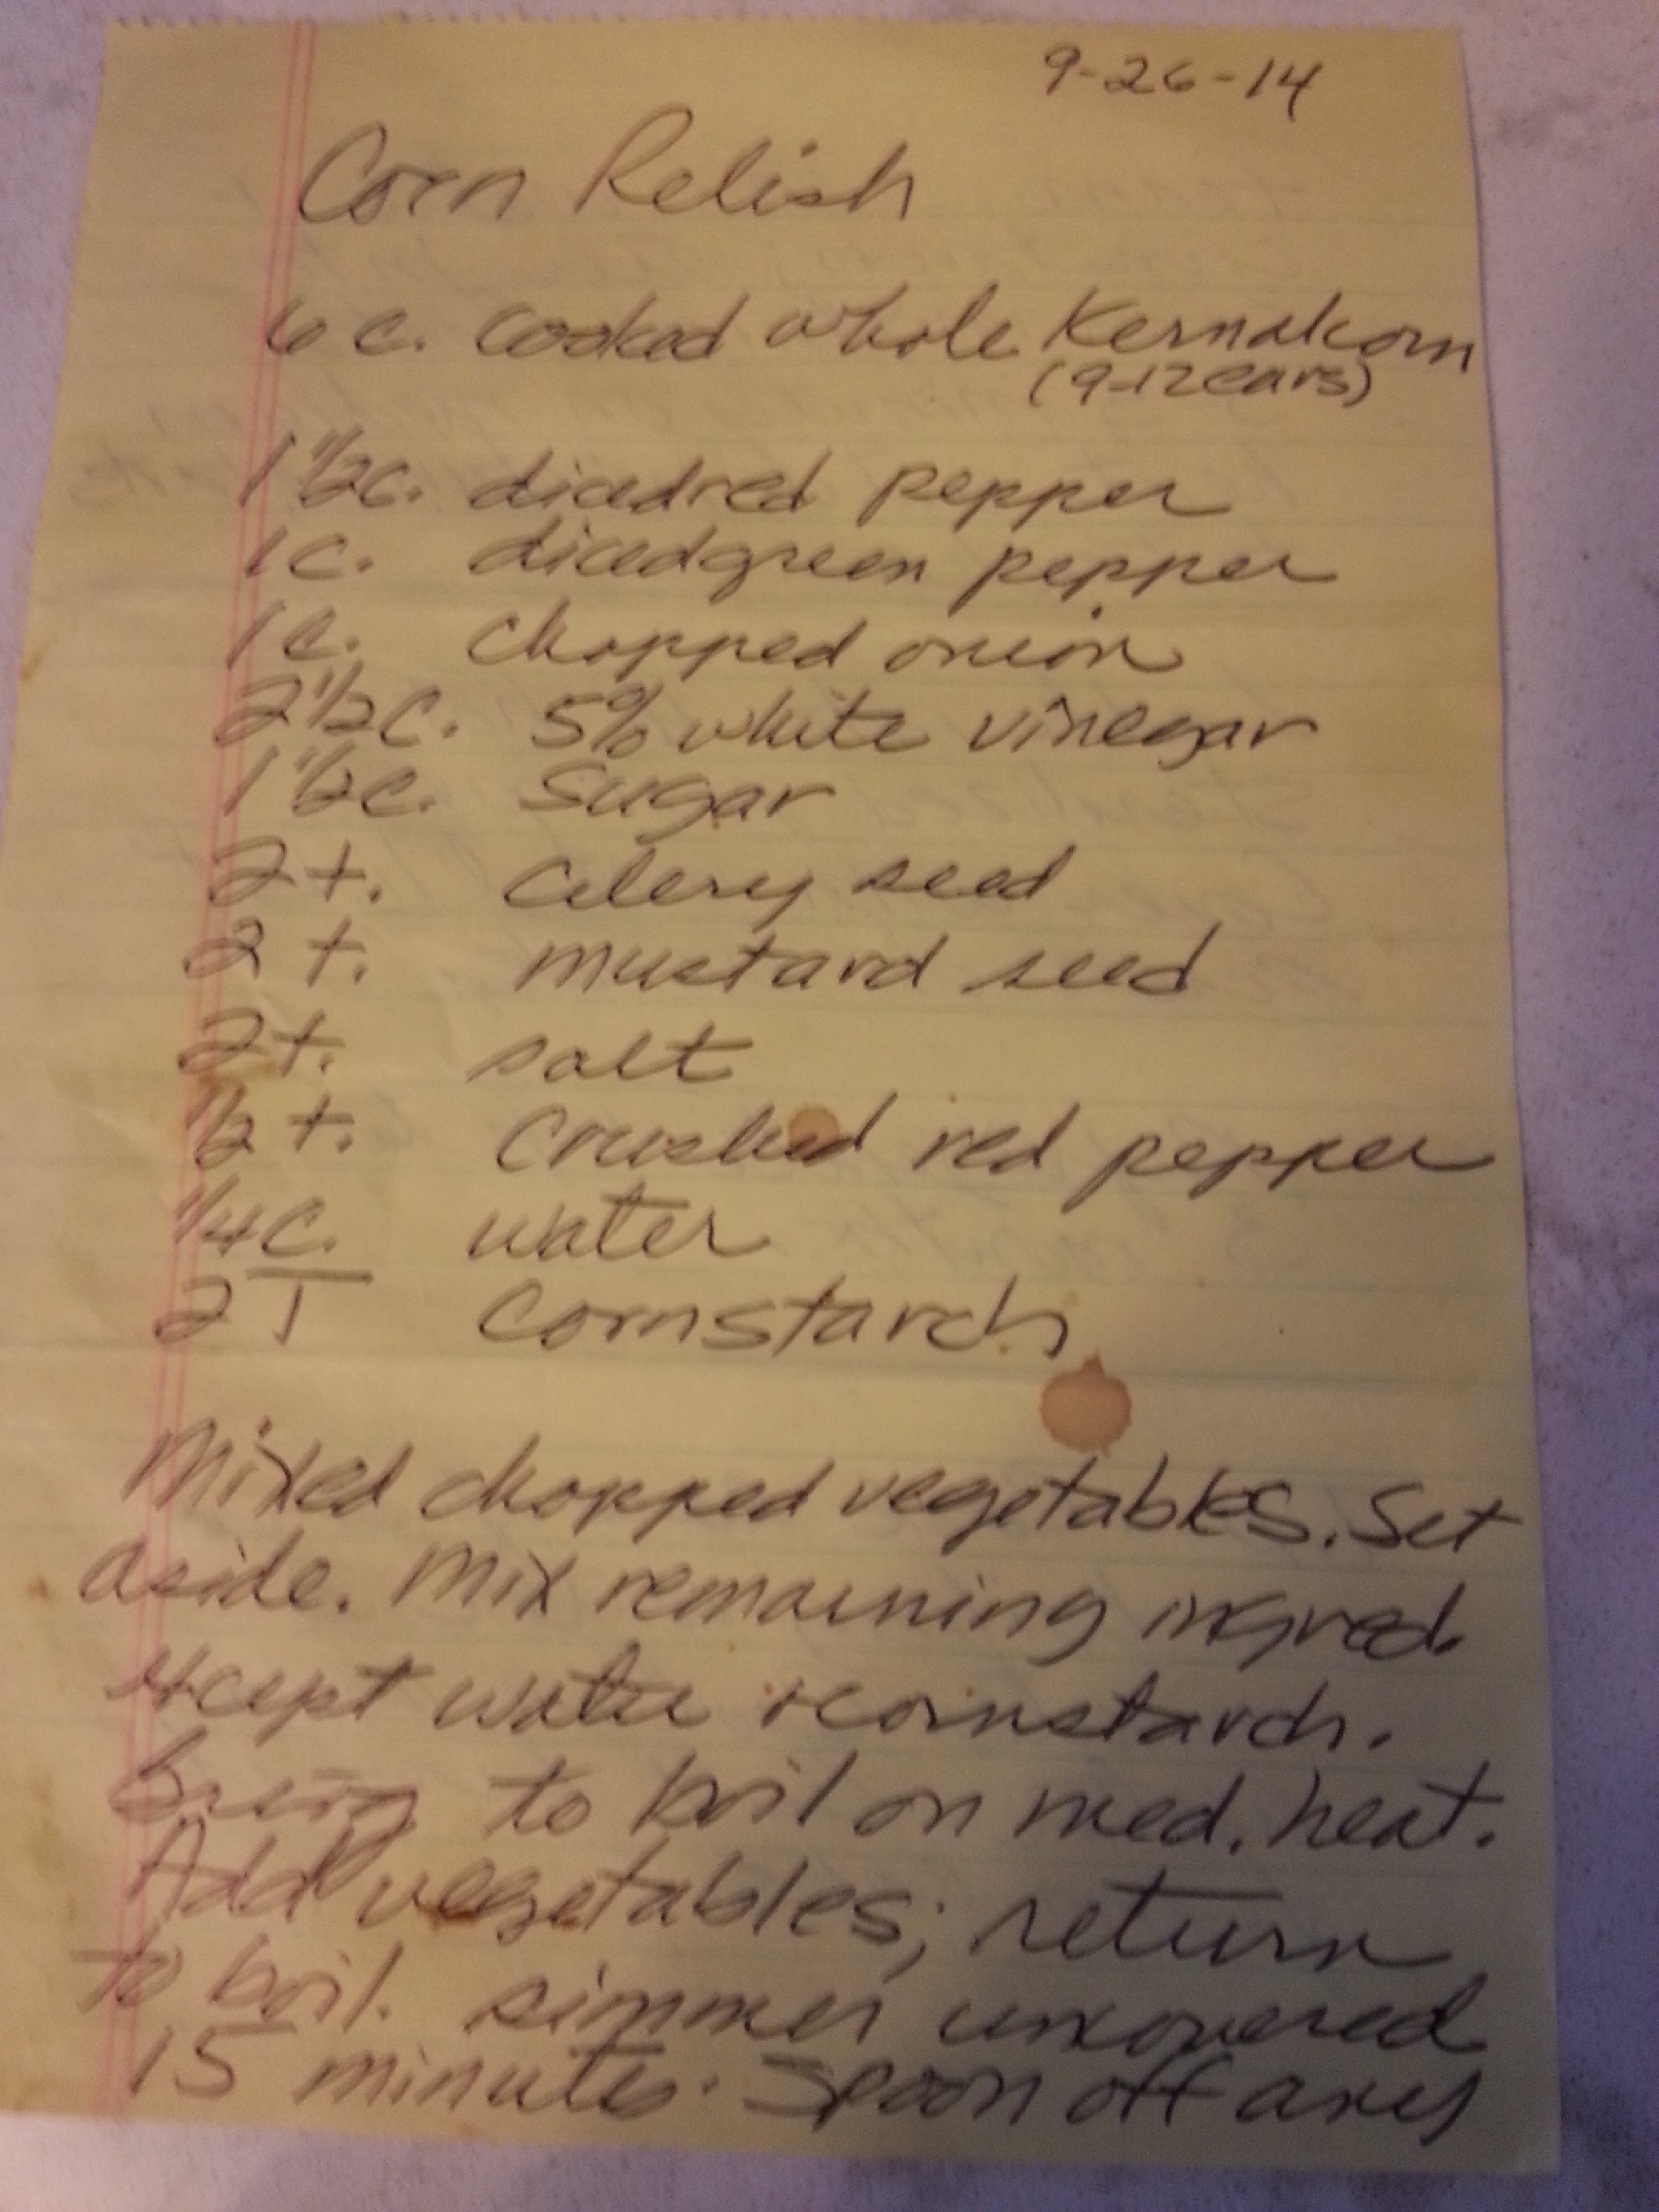 9-26-14
Corn Relish
6 c. cooked whole Kernal corn
(9-12 ears)
1 1/2 c. diced red pepper
1 c. diced green pepper
1 c. chopped onion
2 1/2 c. 5% white vinegar
1 1/2 c. Sugar
2 t. celery seed
2 t. mustard seed
2 t. salt
1/2 t. crushed red pepper
1/4 c. water
2 T cornstarch
Mixed chopped vegetables. Set
aside. Mix remaining ingred.
except water + cornstarch.
Bring to boil on med. heat.
Add vegetables; return
to boil. simmer uncovered
15 minutes. Spoon off any